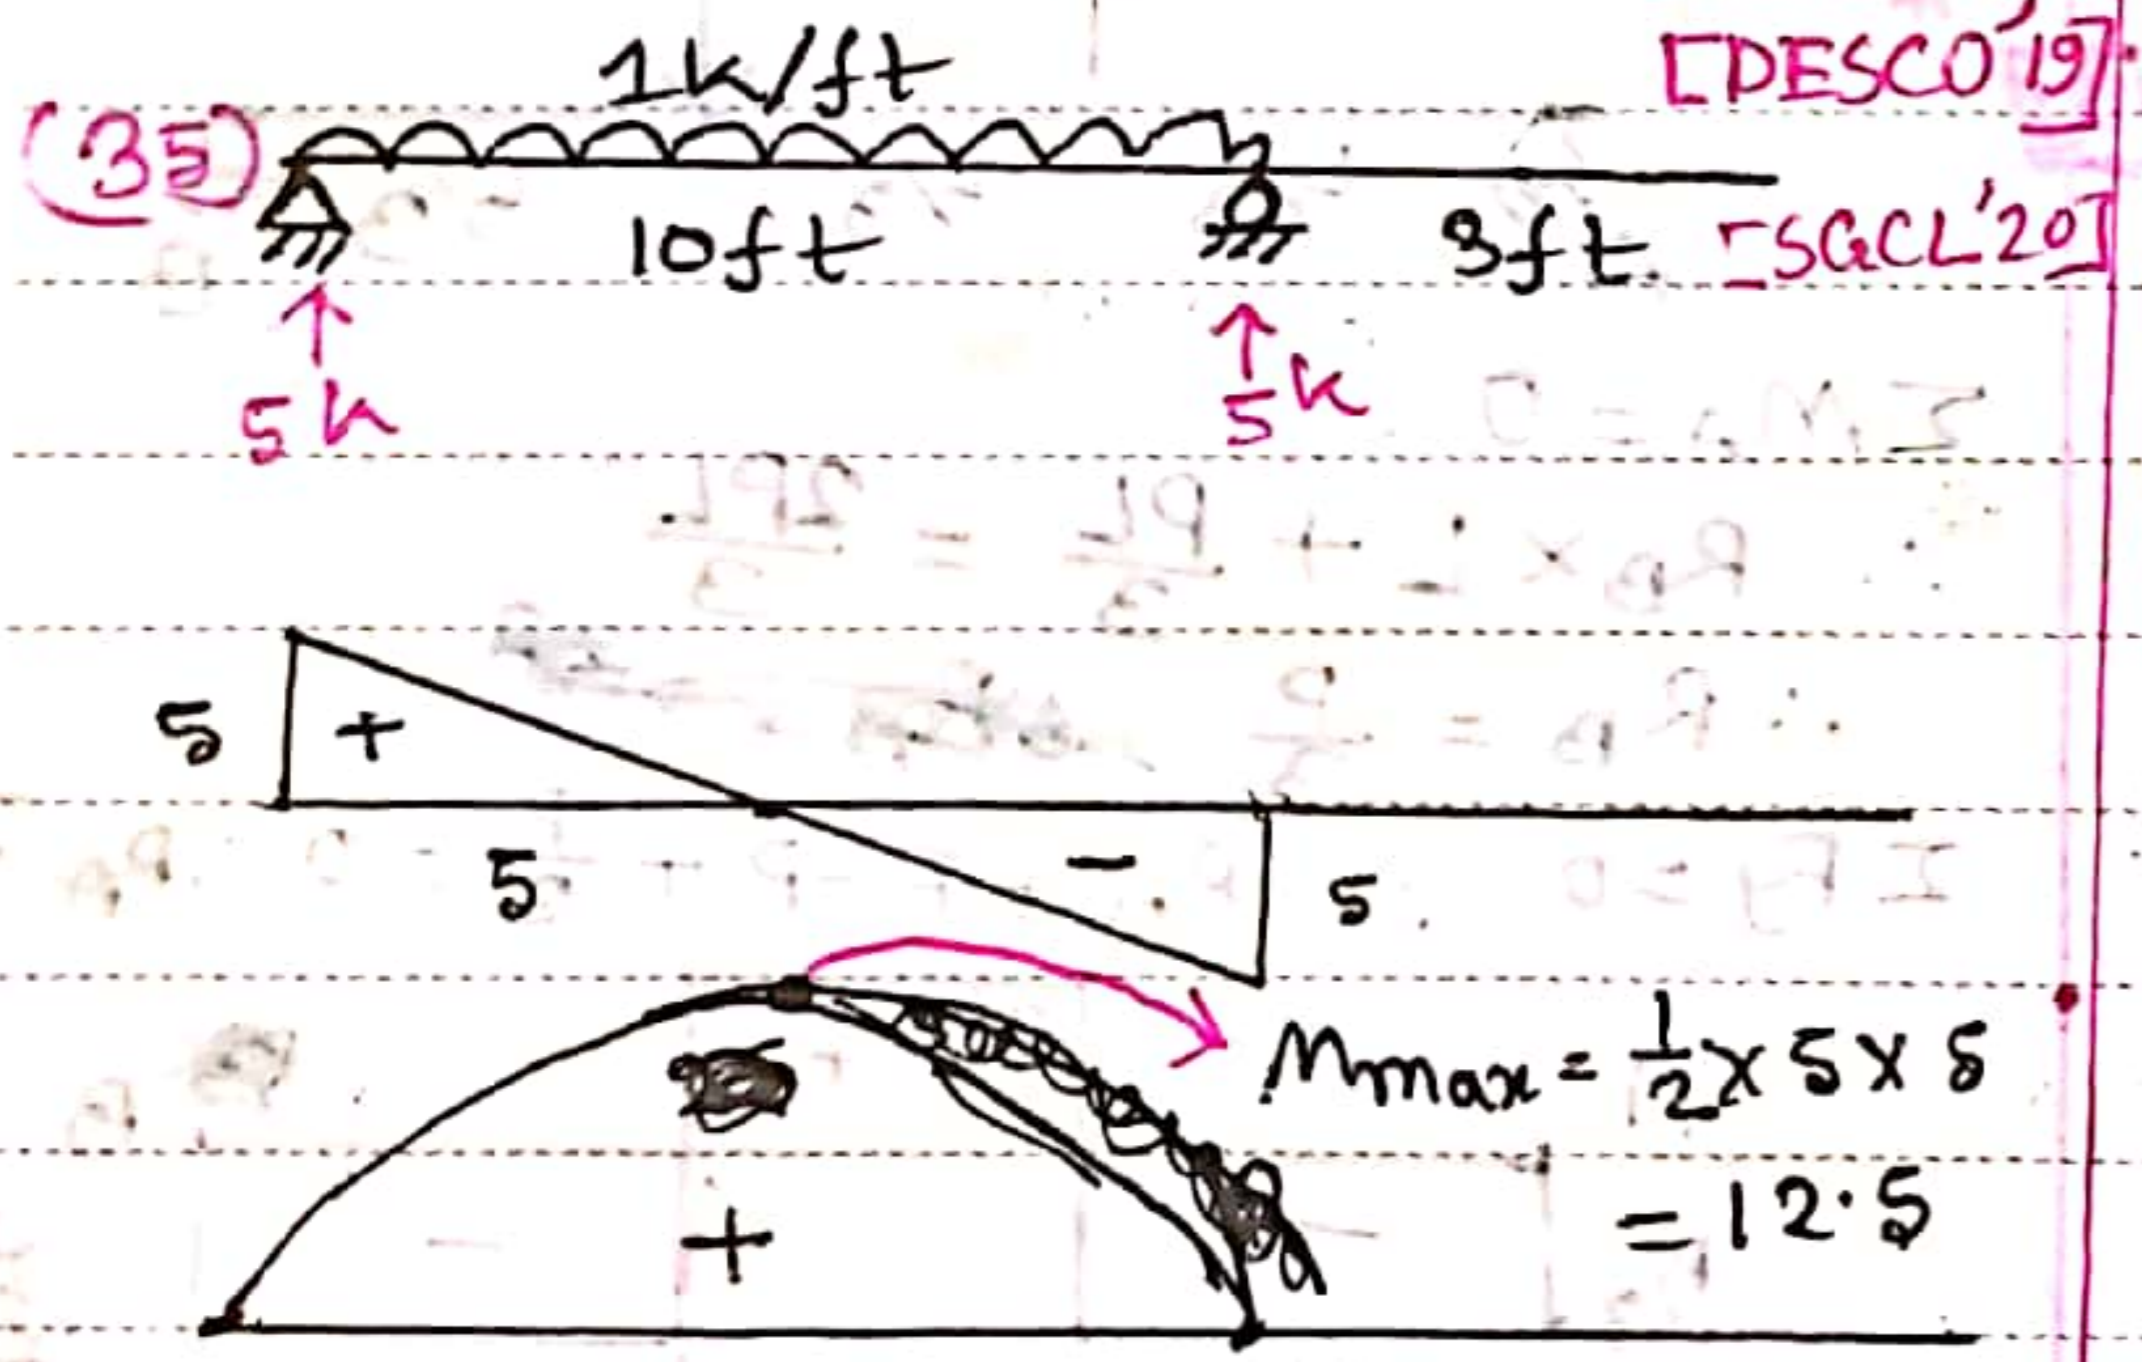 1k/ft [DESCO'19]
(35)
10ft 3ft. [SGCL'20]
5k 5k
5 +
5 - 5
Mmax = 1/2 × 5 × 5
+ = 12.5